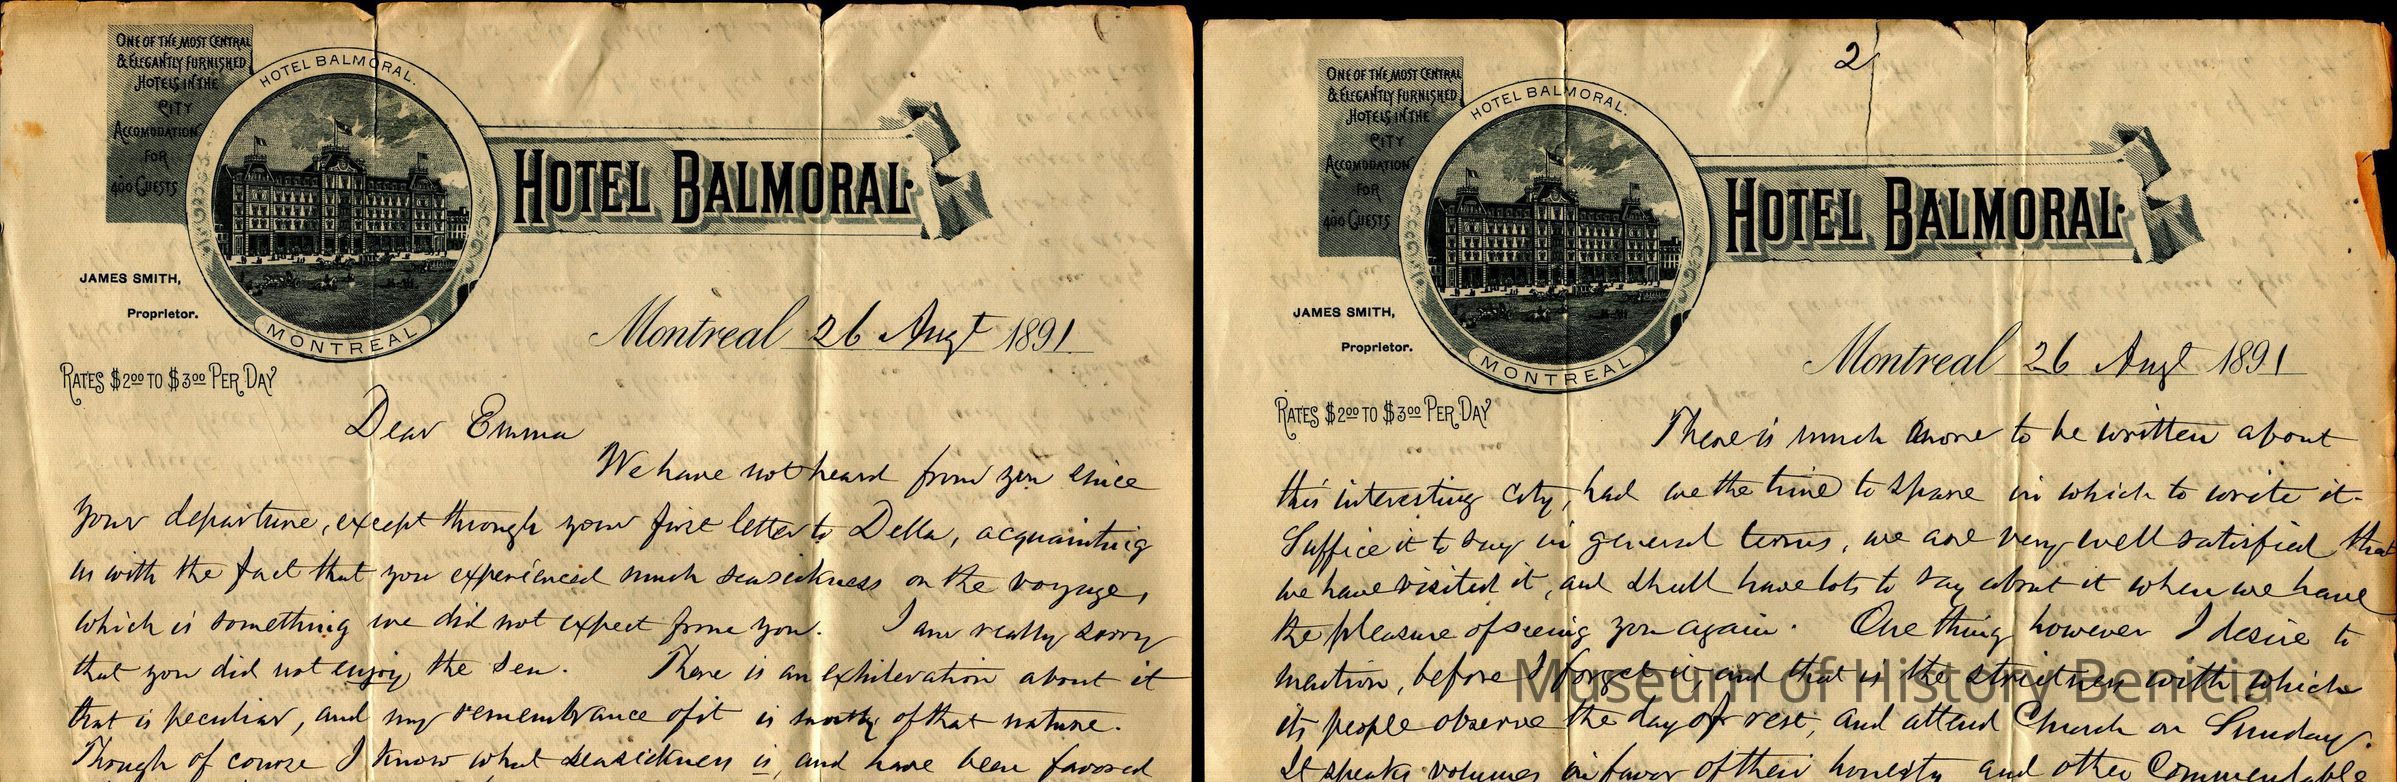 ONE OF THE MOST CENTRAL
& ELEGANTLY FURNISHED
HOTELS IN THE
CITY
ACCOMODATION
FOR
400 GUESTS
HOTEL BALMORAL.
MONTREAL
HOTEL BALMORAL.
JAMES SMITH,
Proprietor.
RATES $2.00 TO $3.00 PER DAY
Montreal 26 Augt 1891
Dear Emma
We have not heard from you since
your departure, except through your first letter to Della, acquainting
us with the fact that you experienced much seasickness on the voyage,
which is something we did not expect from you. I am really sorry
that you did not enjoy the sea. There is an exhileration about it
that is peculiar, and my remembrance of it is mostly of that nature.
Though of course I know what seasickness is, and have been favored
2
ONE OF THE MOST CENTRAL
& ELEGANTLY FURNISHED
HOTELS IN THE
CITY
ACCOMODATION
FOR
400 GUESTS
HOTEL BALMORAL.
MONTREAL
HOTEL BALMORAL.
JAMES SMITH,
Proprietor.
RATES $2.00 TO $3.00 PER DAY
Montreal 26 Augt 1891
There is much more to be written about
this interesting city, had we the time to spare in which to write it.
Suffice it to say in general terms, we are very well satisfied that
we have visited it, and shall have lots to say about it when we have
the pleasure of seeing you again. One thing however I desire to
mention, before I forget it, and that is the strictness with which
its people observe the day of rest, and attend Church on Sunday.
It speaks volumes in favor of their honesty and other Commendable
Museum of History Benicia